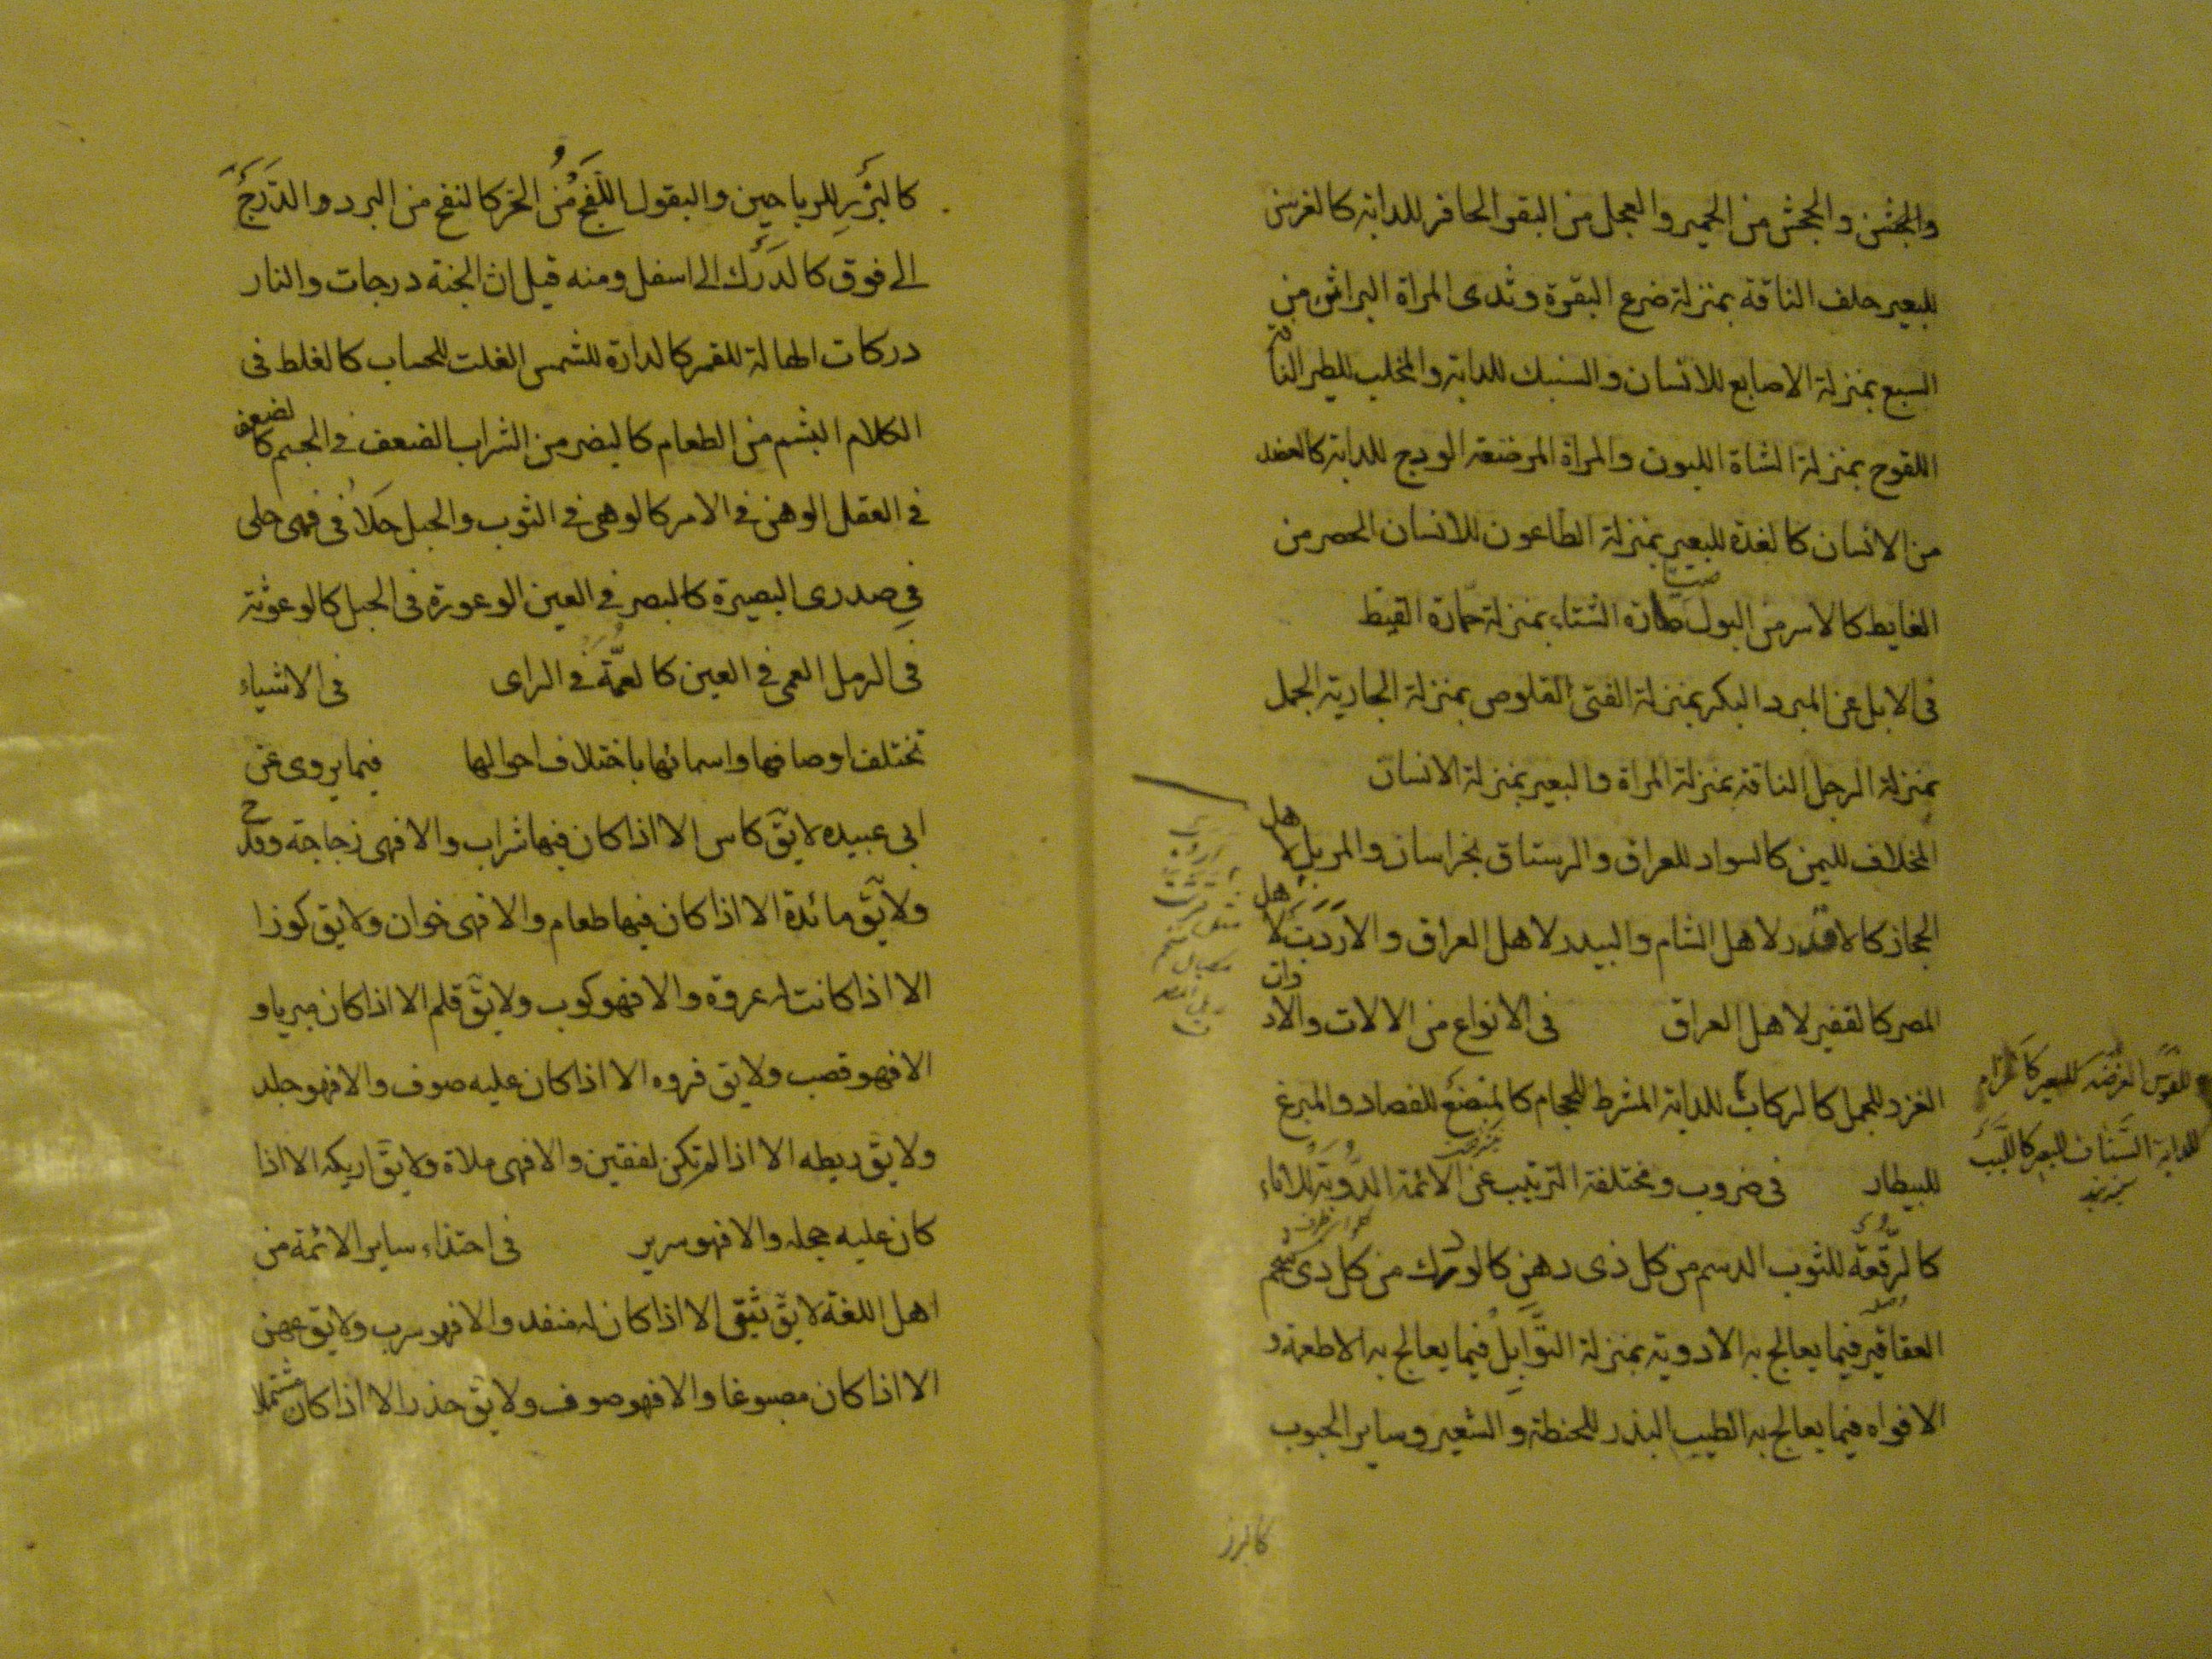 والجثن والجحش من الحمير والعجل من البقر الحافر للدابة كالفرسن
للبعير خلف الناقة بمنزلة ضرع البقرة وثدى المراة البراثن من
السبع بمنزلة الاصابع للانسان والسنبك للدابة والمخلب للطير الناقة
اللقوح بمنزلة الشاة اللبون والمراة المرضعة الودج للدابة كالفصد
من الانسان كالغدة للبعير بمنزلة الطاعون للانسان الحصر من
الغايط كالاسر من البول صبارة الشتاء بمنزلة حمارة القيظ
فى الابل عن المبرد البكر بمنزلة الفتى القلوص بمنزلة الجارية الجمل
بمنزلة الرجل الناقة بمنزلة المراة والبعير بمنزلة الانسان
المخلاف لليمن كالسواد للعراق والرستاق بخراسان والمربد لاهل
الحجاز كالاندر لاهل الشام والبيدر لاهل العراق والاردب لاهل
المصر كالقفيز لاهل العراق فى الانواع من الالات والادوات
الغرز للجمل كالركاب للدابة المشرط للحجام كالمبضع للفصاد والمبزغ
للبيطار فى ضروب ومختلفة الترتيب عن الائمة الروبة للاناء
كالرقعة للثوب الدسم من كل ذى دهن كالودك من كل ذى شحم
العقاقير فيما يعالج به الادوية بمنزلة التوابل فيما يعالج به الاطعمة و
الافواه فيما يعالج به الطيب البذر للحنطة والشعير وساير الحبوب
للبعير كالحزام
للدابة السناف للبعير كاللبب
كالبزر
كالبزر للرياحين والبقول اللفح من الحر كالنفح من البرد والدرج
الى فوق كالدرك الى اسفل ومنه قيل ان الجنة درجات والنار
دركات الهالة للقمر كالدارة للشمس الغلت للحساب كالغلط فى
الكلام البشم من الطعام كالبغر من الشراب الضعف فى الجسم كالضعف
فى العقل الوهن فى الامر كالوهى فى الثوب والحبل حلا فى فمى حلى
فى صدرى البصيرة كالبصر فى العين الوعورة فى الجبل كالوعوثة
فى الرمل العمى فى العين كالعمه فى الراى فى الاشياء
تختلف اوصافها واسمائها باختلاف احوالها فيما يروى عن
ابى عبيده لايق كاس الا اذا كان فيها شراب والا فهى زجاجة وقدح
ولايق مائدة الا اذا كان فيها طعام والا فهى خوان ولايق كوزا
الا اذا كانت له عروة والا فهو كوب ولايق قلم الا اذا كان مبريا و
الا فهو قصب ولايق فروه الا اذا كان عليه صوف والا فهو جلد
ولايق ريطه الا اذا لم تكن لفقين والا فهى ملاة ولايق اريكه الا اذا
كان عليه حجله والا فهو سرير فى احتذاء ساير الائمة من
اهل اللغة لايق نفق الا اذا كان له منفد والا فهو سرب ولايق عهن
الا اذا كان مصبوغا والا فهو صوف ولايق حذر الا اذا كان مشتملا